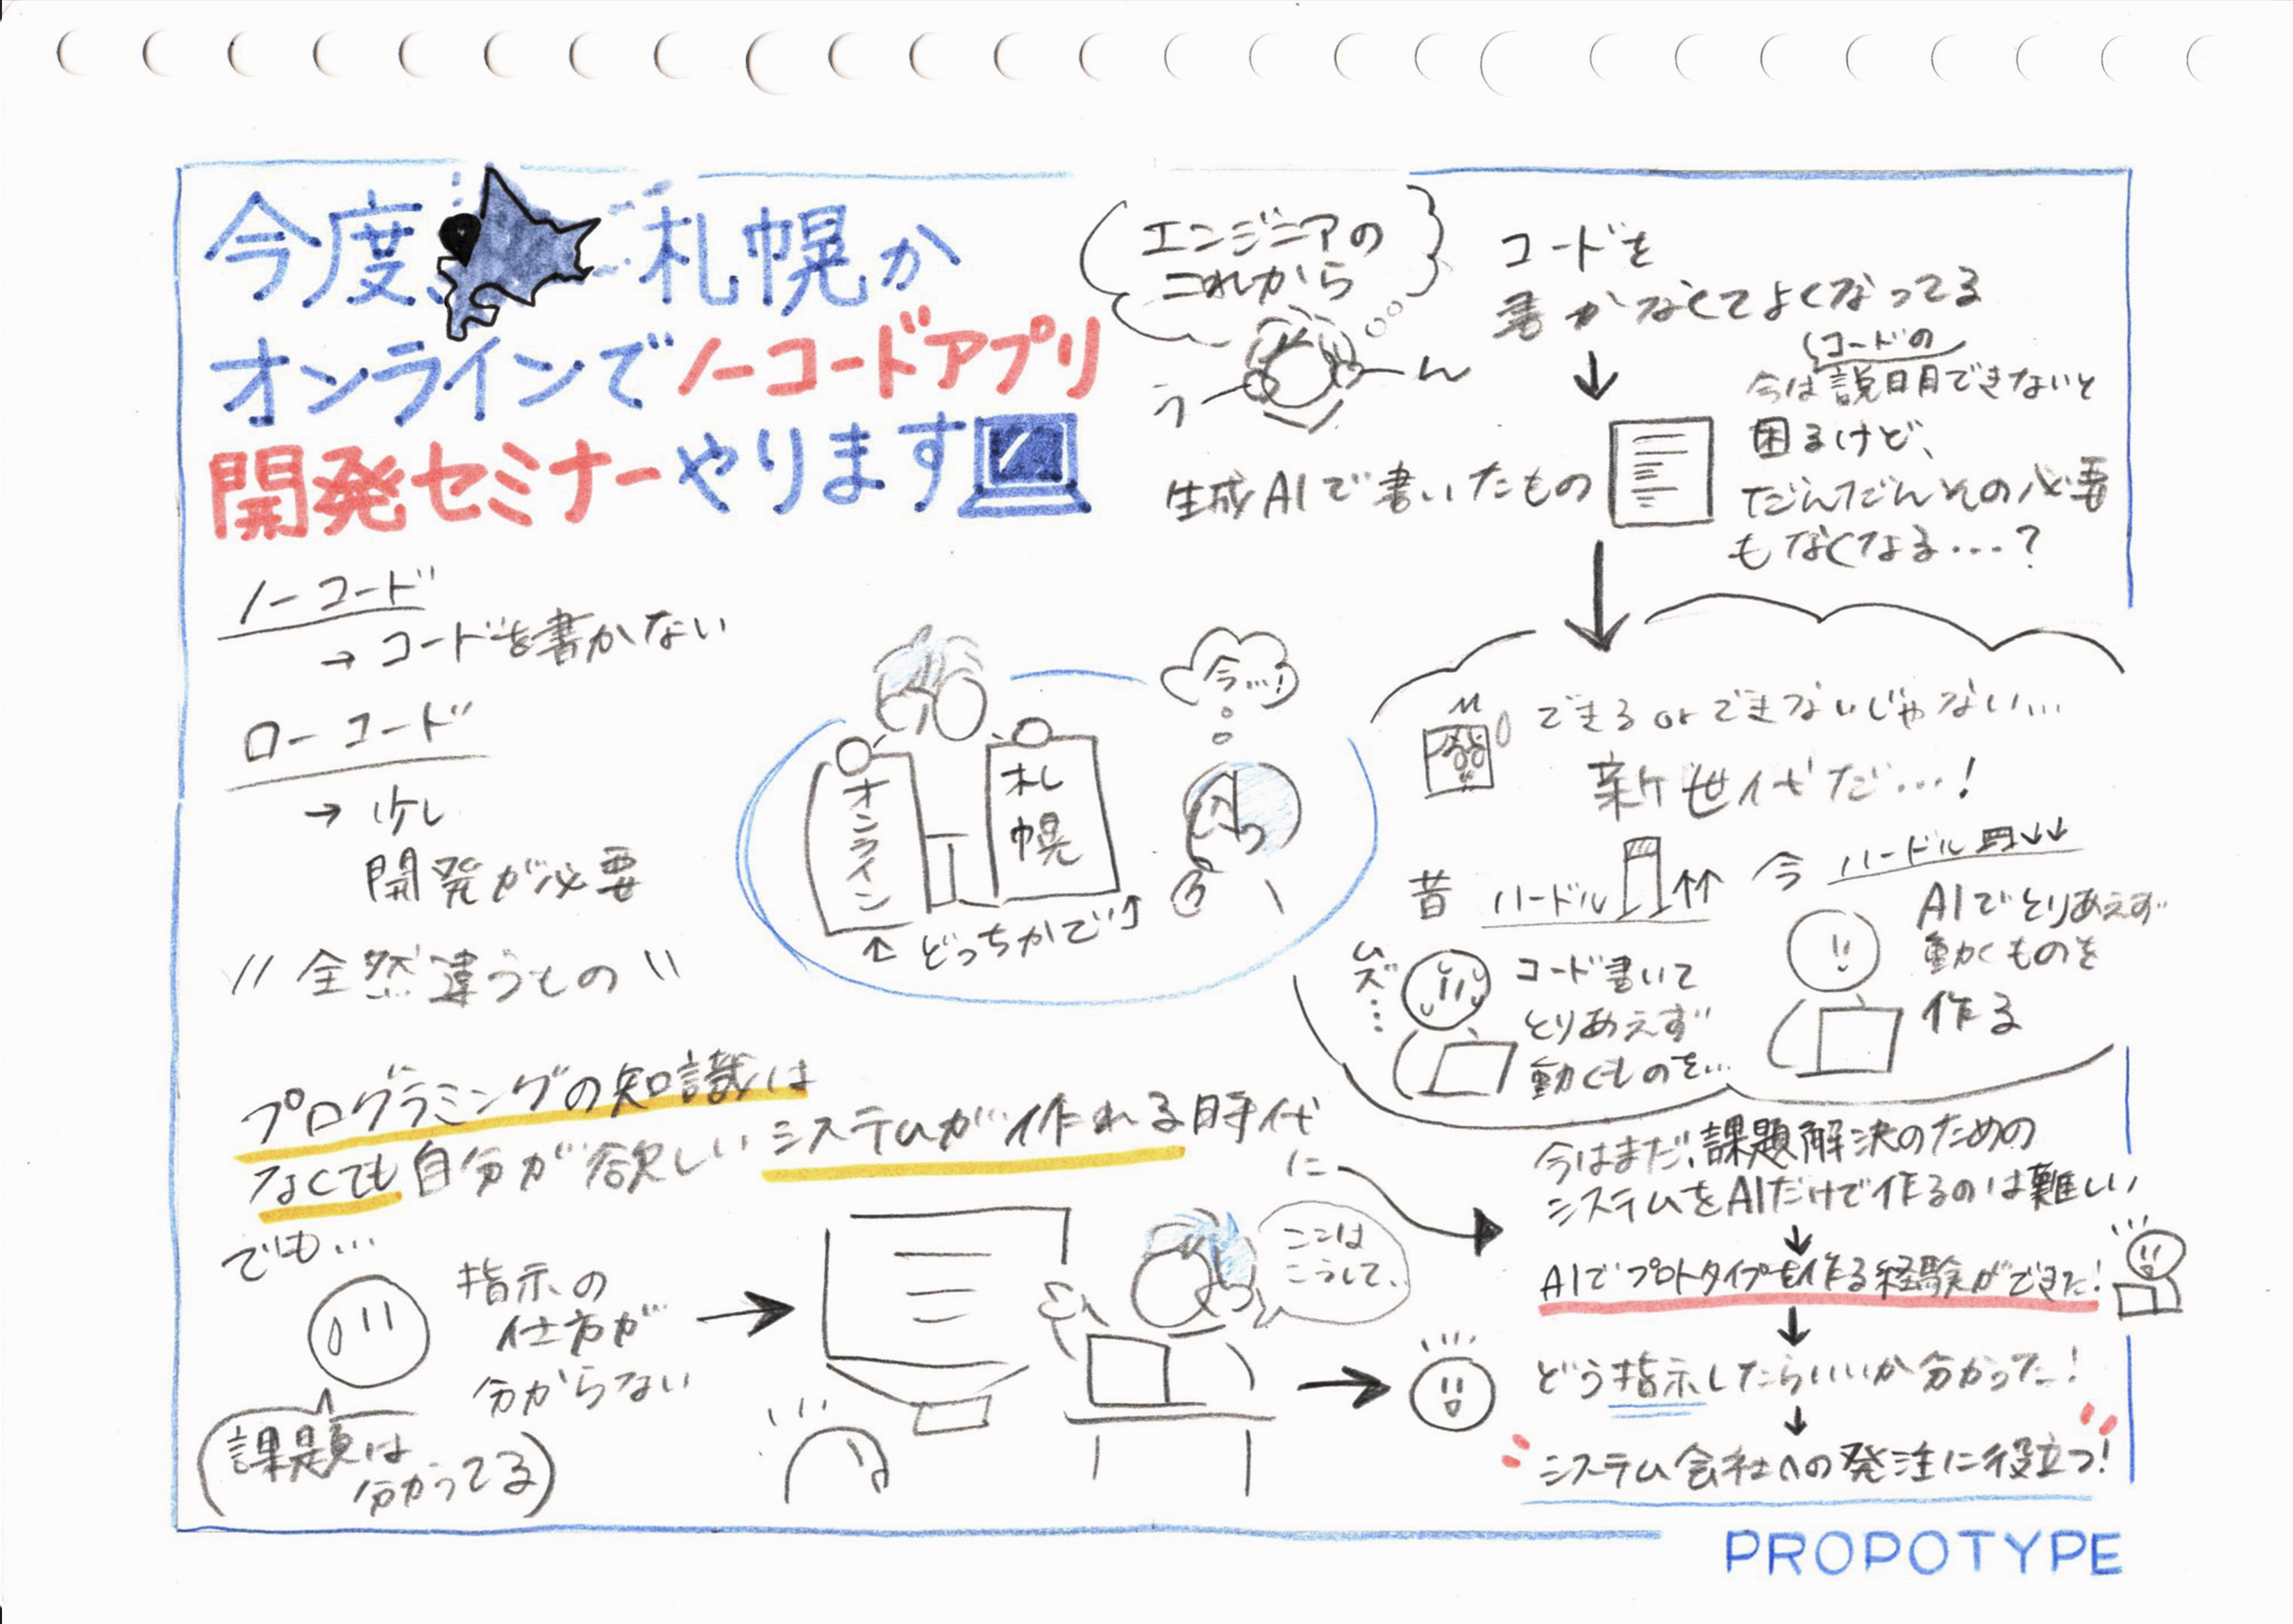 今度、札幌か
オンラインでノーコードアプリ
開発セミナーやります
ノーコード
→ コードを書かない
ローコード
→ 少し
開発が必要
〃 全然違うもの 〃
オンライン
札幌
↑どっちかで↑
今…!
エンジニアの
これから
う
ん
コードを
書かなくてよくなってる
↓
生成AIで書いたもの
コードの
今は説明できないと
困るけど、
だんだんその必要
もなくなる…?
できるorできないじゃない…
新世代だ…!
昔 ハードル ↑↑
ムズ…
コード書いて
とりあえず
動くものを…
今 ハードル ↓↓
AIでとりあえず
動くものを
作る
プログラミングの知識は
なくても自分が欲しいシステムが作れる時代
に
でも…
指示の
仕方が
分からない
課題は
分かってる
ここは
こうして、
今はまだ、課題解決のための
システムをAIだけで作るのは難しい
↓
AIでプロトタイプを作る経験ができた!
↓
どう指示したらいいか分かった!
↓
システム会社への発注に役立つ!
PROPOTYPE